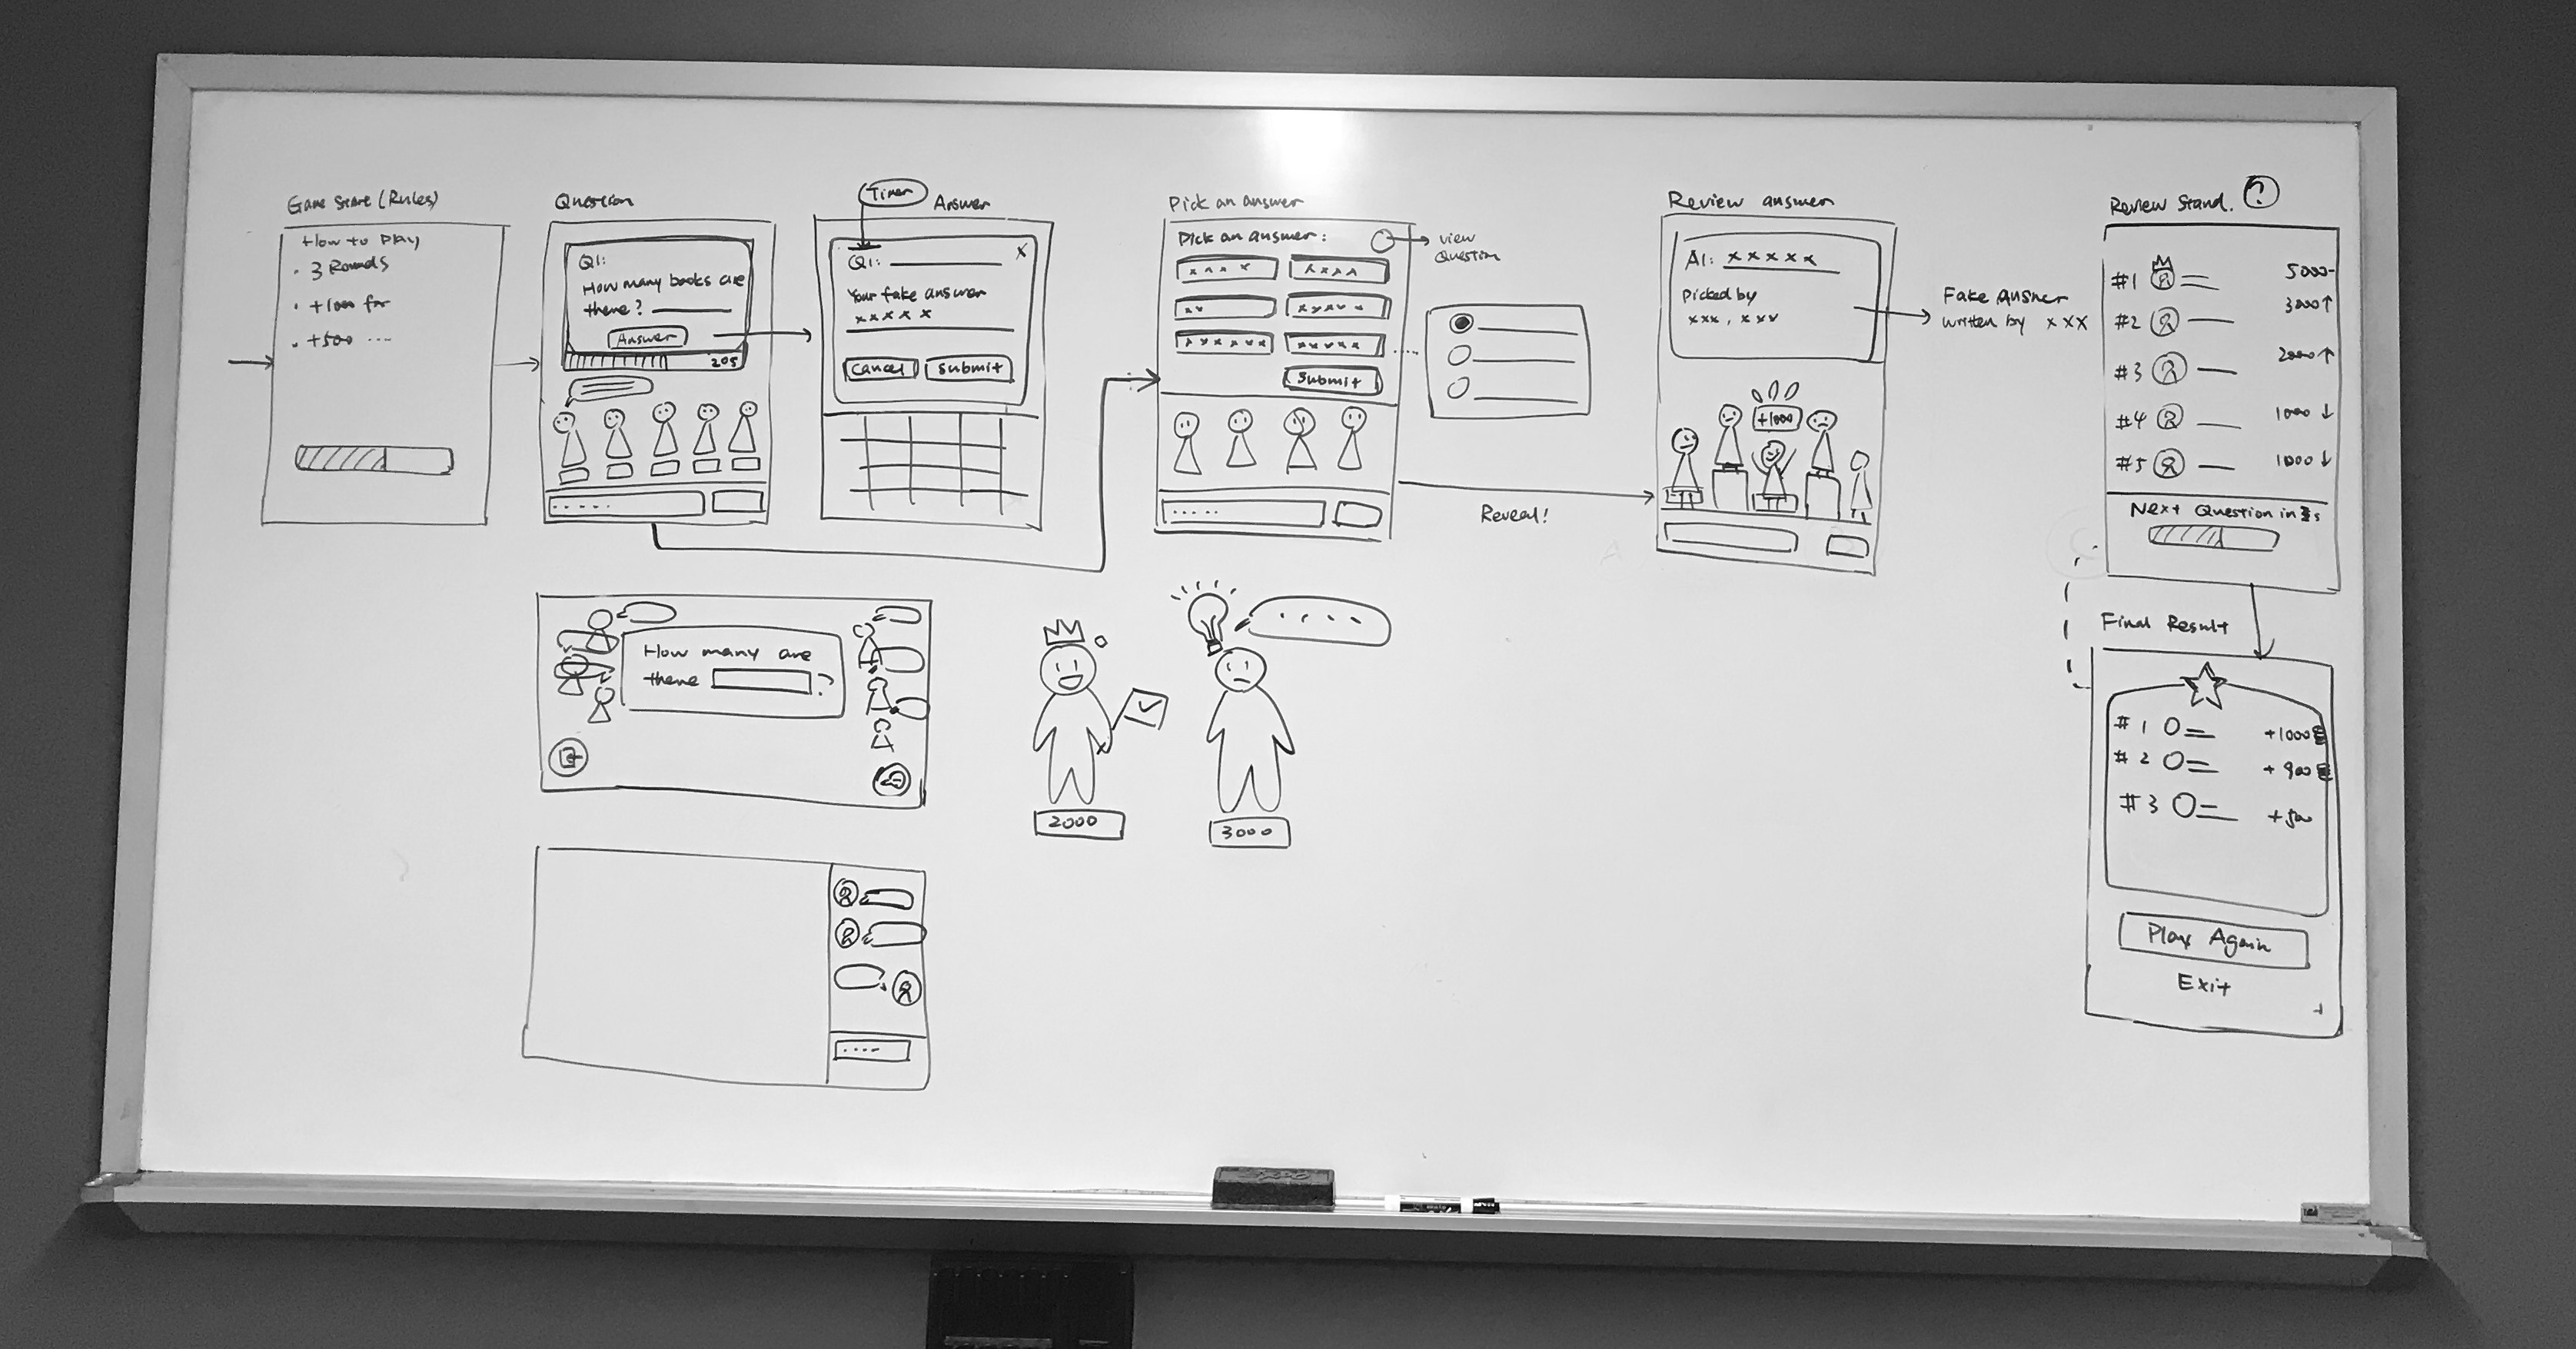 Game Start (Rules)
How to Play
· 3 Rounds
· +1000 for
· +500 ...
Question
Q1:
How many books are
there?
Answer
20s
.....
Timer
Answer
Q1:
x
Your fake answer
x x x x x
Cancel
Submit
Pick an answer
Pick an answer:
view
Question
x x x x
x x x x
x x
x x x x x
x x x x x x
x x x x x
Submit
.....
Reveal!
Review answer
A1: x x x x x
Picked by
xxx, xxx
Fake answer
written by xxx
+1000
Review Stand. ?
#1 5000-
#2 3000↑
#3 2000↑
#4 1000↓
#5 1000↓
Next Question in s
Final Result
#1 +1000
#2 +900
#3 +500
Play Again
Exit
How many are
there ?
2000
....
3000
....